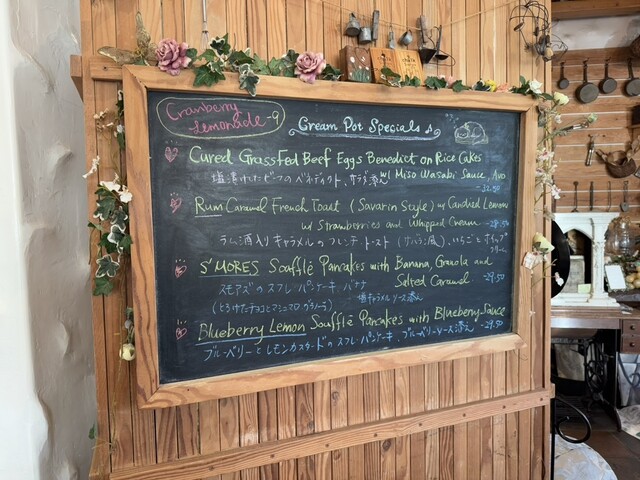 Cranberry
Lemonade -9
Cream Pot Specials
Cured Grassfed Beef Eggs Benedict on Rice Cakes
w/ Miso Wasabi Sauce, Avo
塩漬けビーフのベネディクト、サラダ添え
-32.50
Rum Caramel French Toast (Savarin Style) w/ Candied Lemon
w/ Strawberries and Whipped Cream
ラム酒入りキャラメルのフレンチトースト (サバラン風)、いちごとホイップ
クリーム
S'MORES Soufflé Pancakes with Banana, Granola and
Salted Caramel -29.50
スモアズのスフレパンケーキ、バナナ
塩キャラメルソース添え
(とろけたチョコとマシュマロ、グラノーラ)
Blueberry Lemon Soufflé Pancakes with Blueberry Sauce
-29.50
ブルーベリーとレモンカスタードのスフレパンケーキ、ブルーベリーソース添え